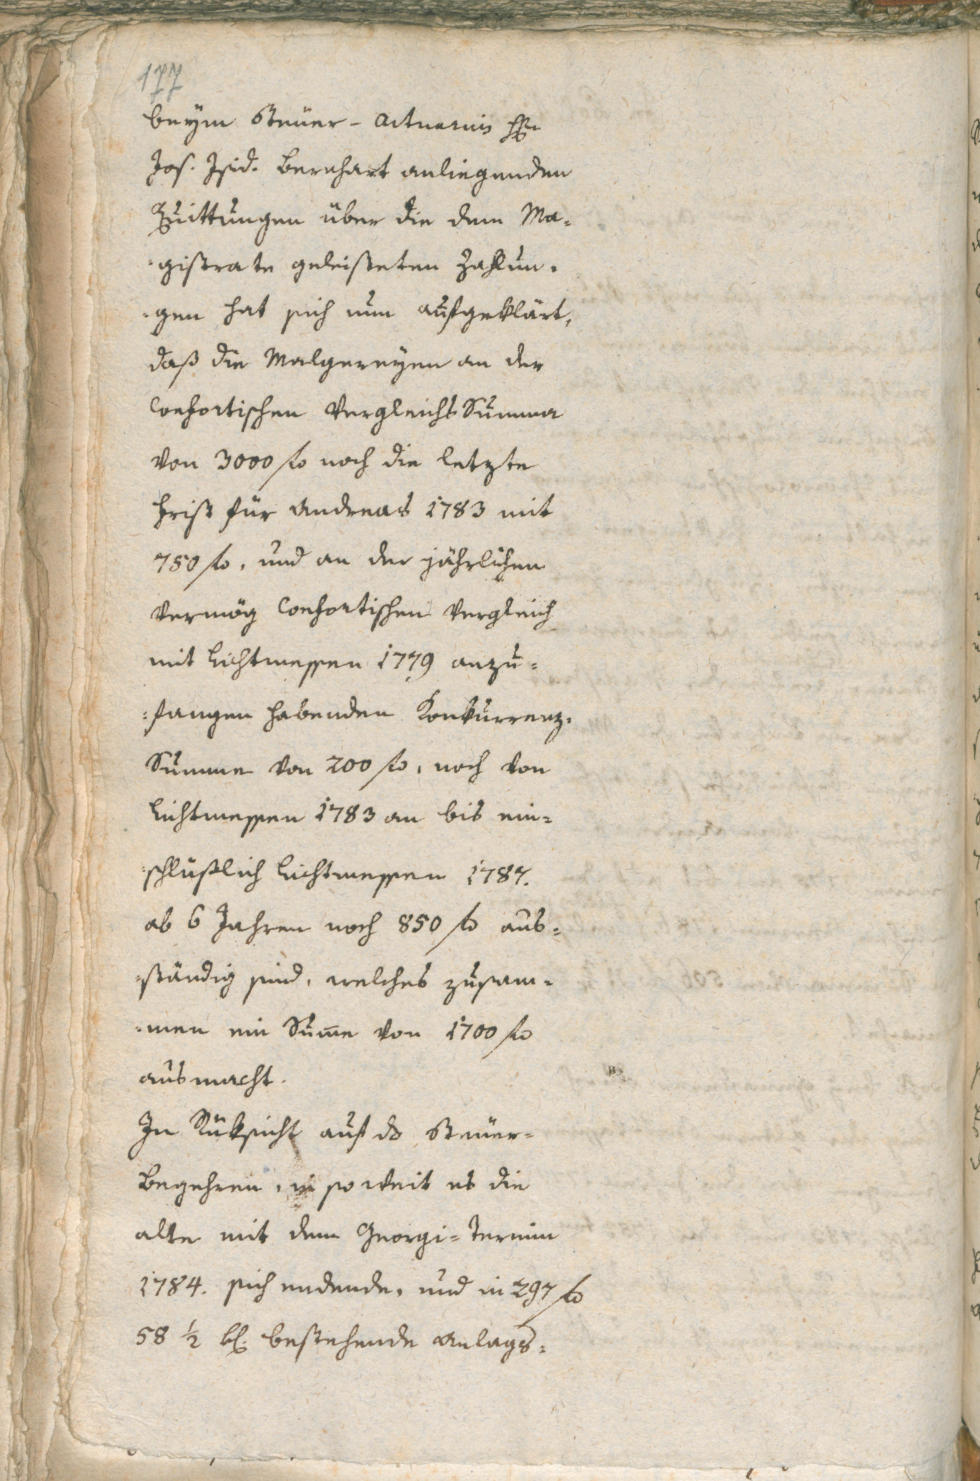 177
beÿm Steüer-Actuarius H.
Jos. Isid. Bernhart anliegenden
Quittungen über die dem Ma-
-gistrate geleisteten Zahlun-
-gen hat sich nun aufgeklärt,
daß die Malgereyen an der
Consortischen Vergleichs Summa
von 3000 f noch die letzte
Frist für Andreas 1783 mit
750 f, und an der jährlichen
vermög Consortischen Vergleich
mit Lichtmessen 1779 anzu-
-fangen habenden Konkurrenz-
Summe von 200 f, noch von
Lichtmessen 1783 an bis ein-
-schlüßlich Lichtmessen 1787.
als 6 Jahren noch 850 f aus-
-ständig sind, welches zusam-
-men ein Sum̅e von 1700 f
ausmacht.
In Rüksicht auf ds Steüer-
Begehren, in so weit es die
alte mit dem Georgi-Termin
1784. sich endende, und in 297 f
58 ½ k. bestehende Anlags-